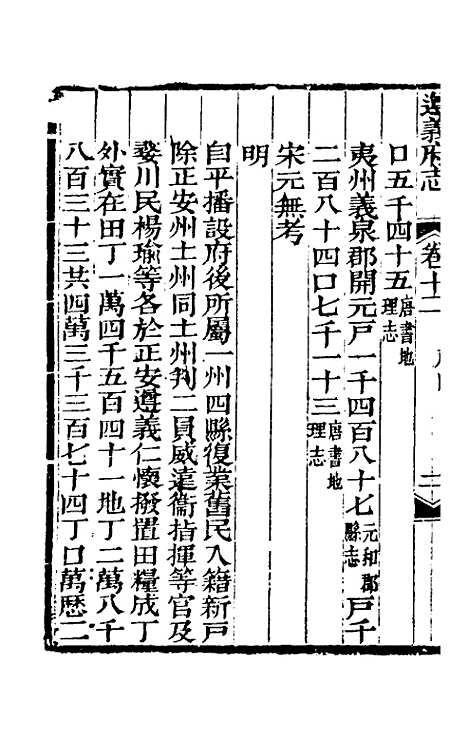 遵義府志 卷十二 二
口五千四十五唐書地理志
夷州義泉郡開元戶一千四百八十七元和郡縣志戶千
二百八十四口七千一十三唐書地理志
宋元無考
明
自平播設府後所屬一州四縣復業舊民入籍新戶
除正安州土州同土州判二員威遠衞指揮等官及
婺川民楊瑜等各於正安遵義仁懷撥置田糧成丁
外實在田丁一萬四千五百四十一地丁二萬八千
八百三十三共四萬三千三百七十四丁口萬歷二